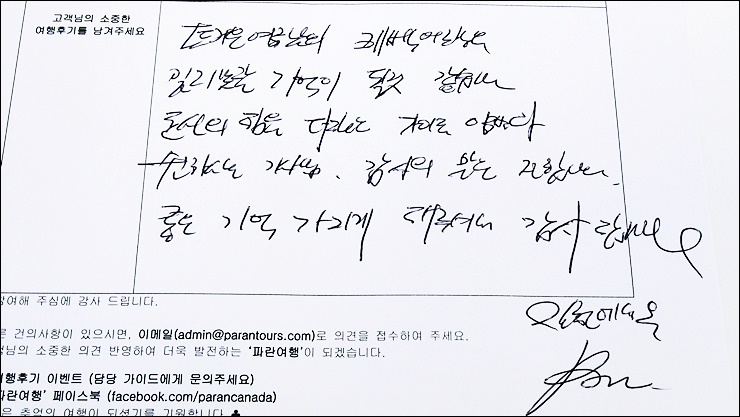 고객님의 소중한
여행후기를 남겨주세요
뜨거운 여름날의 퀘벡여행은
기억이 될것 같습니다
최선의 힘을 다하는
기사님. 감사의 전합니다.
좋은 기억 가지게 해주셔서 감사드립니다
참여해 주심에 감사 드립니다.
른 건의사항이 있으시면, 이메일(admin@parantours.com)로 의견을 접수하여 주세요.
객님의 소중한 의견 반영하여 더욱 발전하는 '파란여행'이 되겠습니다.
여행후기 이벤트 (담당 가이드에게 문의주세요)
파란여행' 페이스북 (facebook.com/parancanada)
은 추억의 여행이 되셨기를 기원합니다.♣